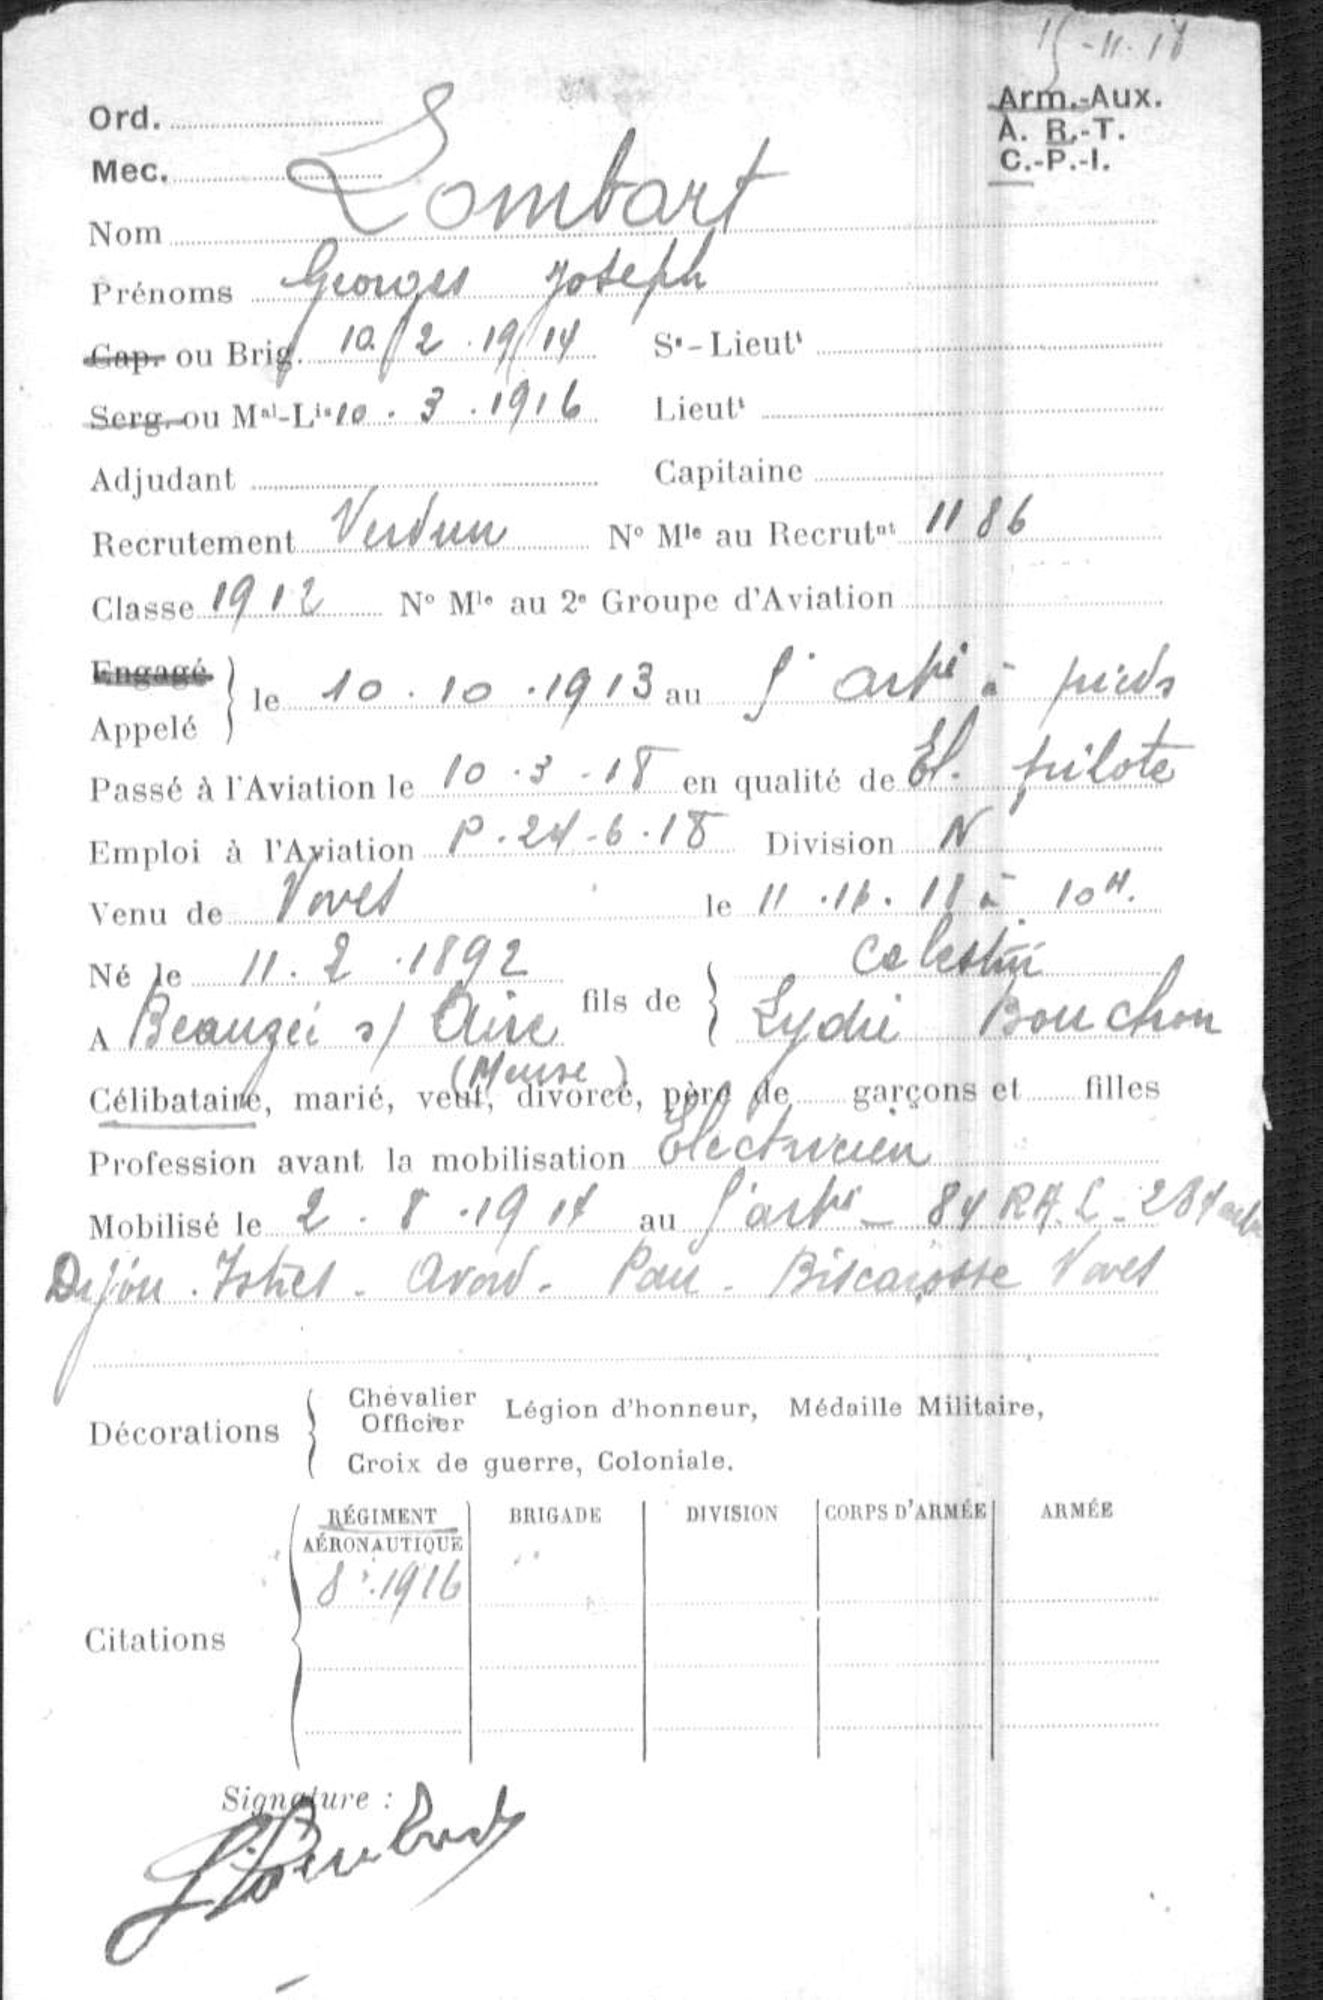 15-11-18
Ord.
Arm.-Aux.
A. R.-T.
Mec.
C.-P.-I.
Nom Lombart
Prénoms Georges Joseph
Cap. ou Brig. 10/2.19/14 Sˢ-Lieutᵗ
Serg. ou Mᵃˡ-Lⁱˢ 10.3.1916 Lieutᵗ
Adjudant Capitaine
Recrutement Verdun N° Mˡᵉ au Recrutⁿᵗ 1186
Classe 1912 N° Mˡᵉ au 2ᵉ Groupe d'Aviation
Engagé
Appelé
le 10.10.1913 au artⁱᵉ à pieds
Passé à l'Aviation le 10.3.18 en qualité de El. pilote
Emploi à l'Aviation P.24-6.18 Division N
Venu de Voves le 11.11.18 à 10ᴴ.
Né le 11.2.1892 fils de Celestin
A Beauzée s/ Aire Lydie Bouchon
(Meuse)
Célibataire, marié, veuf, divorcé, père de garçons et filles
Profession avant la mobilisation Electricien
Mobilisé le 2.8.1914 au artⁱᵉ - 84 RAL - 284
Dijon. Istres - Avord - Pau - Biscarosse Voves
Décorations
Chevalier
Officier
Légion d'honneur, Médaille Militaire,
Croix de guerre, Coloniale.
RÉGIMENT BRIGADE DIVISION CORPS D'ARMÉE ARMÉE
AÉRONAUTIQUE
1916
Citations
Signature :
GLombart